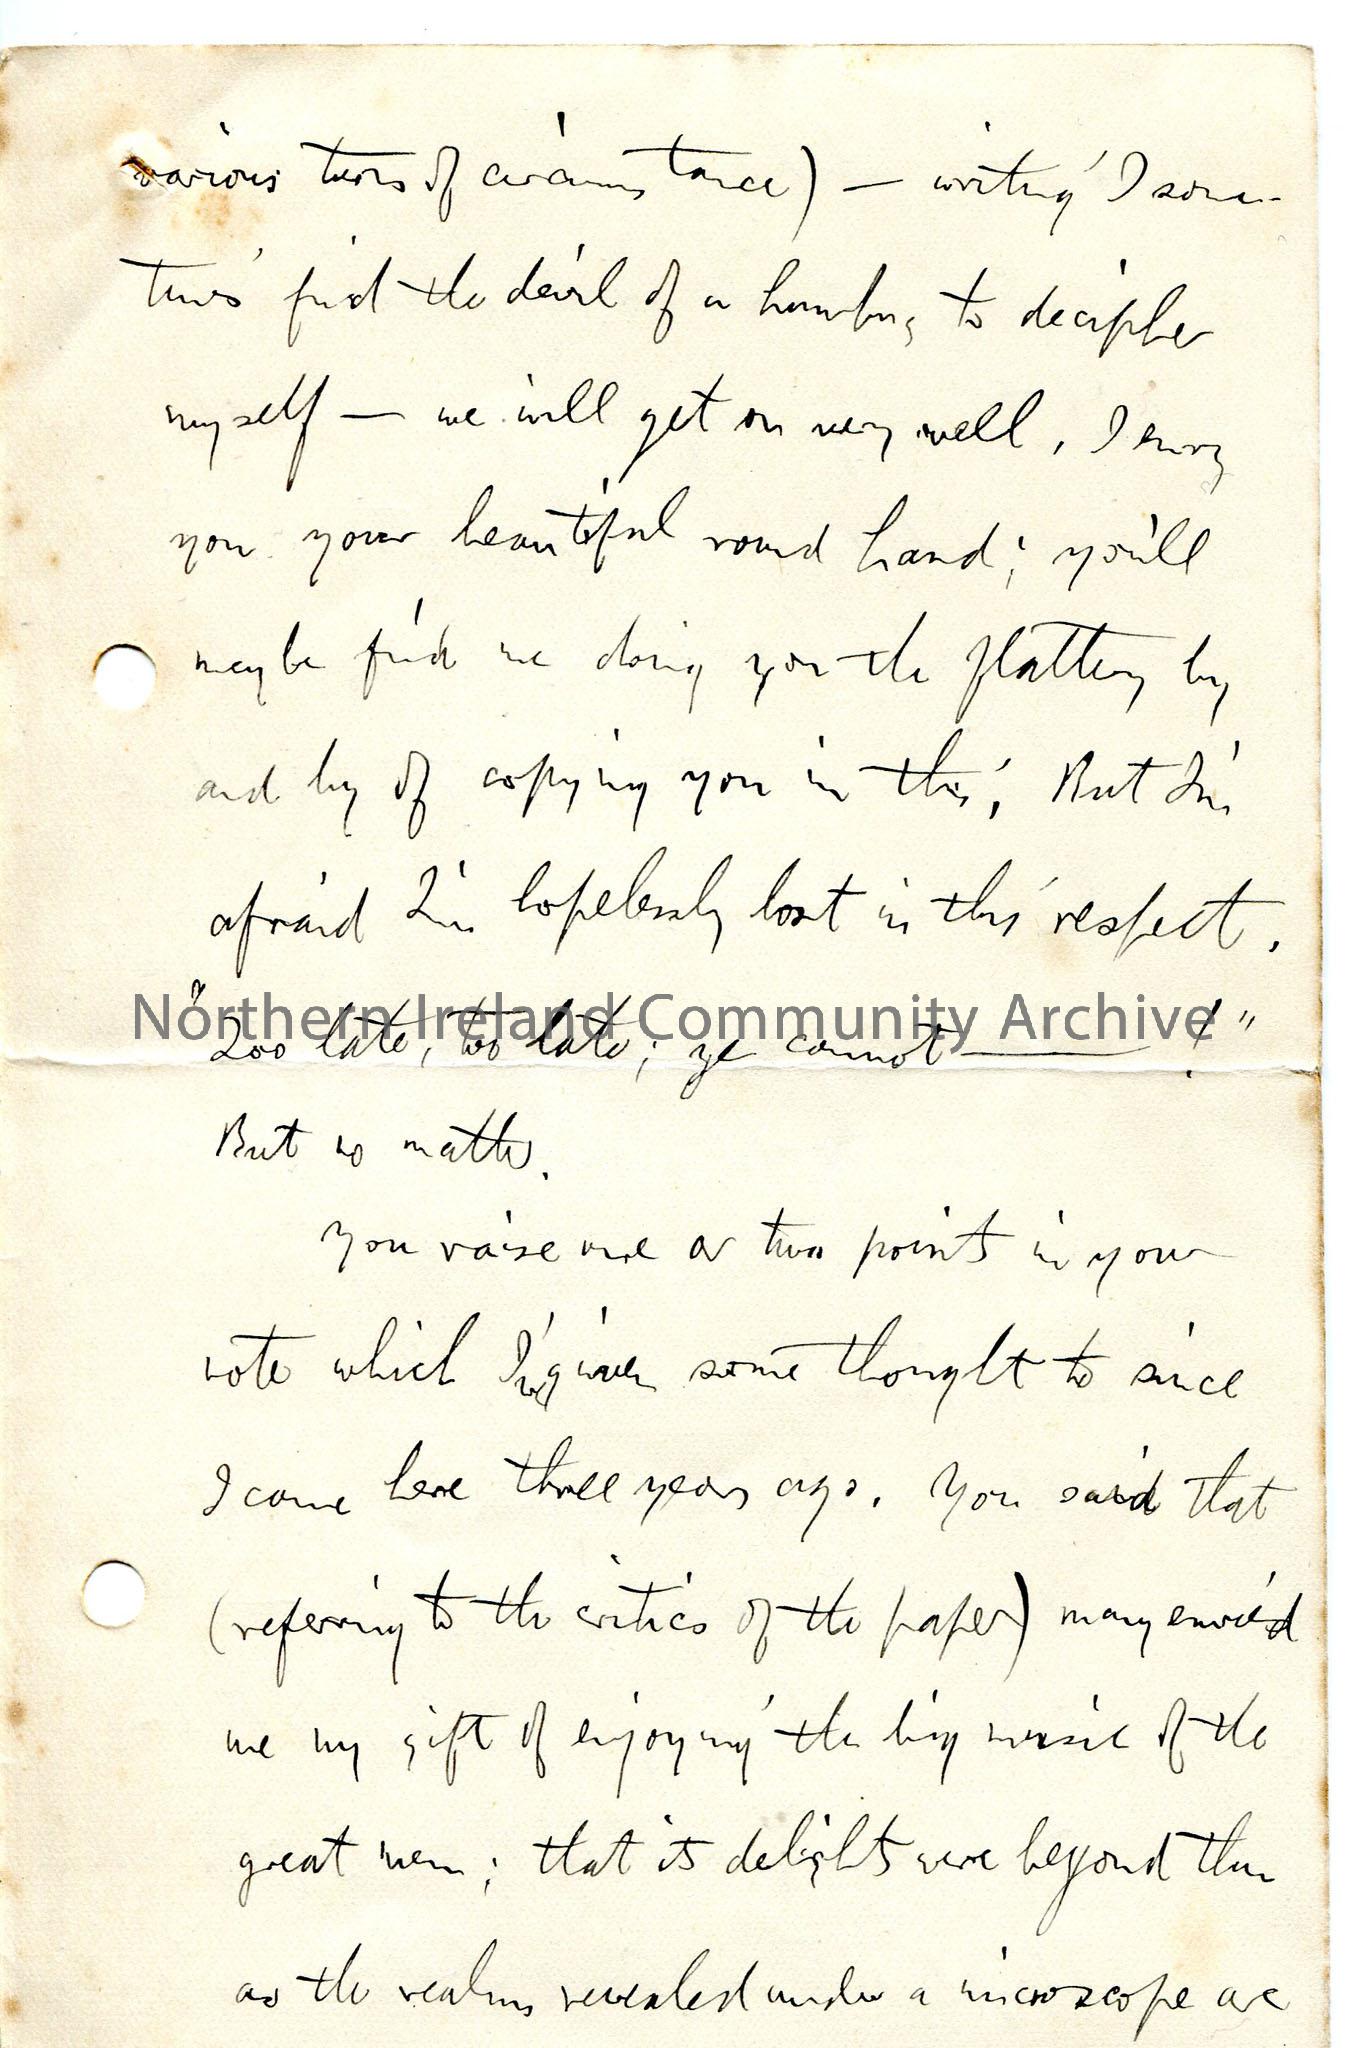 various turns of circumstance) — writing I some-
times find the devil of a humbug to decipher
myself — we will get on very well. I envy
you your beautiful round hand; you'll
maybe find me doing you the flattery by
and by of copying you in this; But I'm
afraid I'm hopelessly lost in this respect.
Northern Ireland Community Archive
"Too late, too late; ye cannot ——— !"
But no matter.
You raise one or two points in your
note which I've given some thought to since
I came here three years ago. You said that
(referring to the critics of the paper) many envied
me my gift of enjoying the big music of the
great men; that its delights were beyond them
as the realms revealed under a microscope are